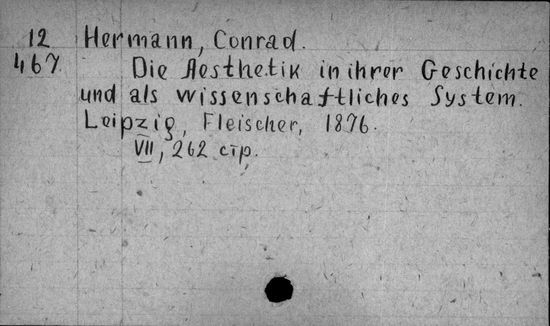 12 Hermann, Conrad.
467 Die Aesthetik in ihrer Geschichte
und als wissenschaftliches System.
Leipzig, Fleischer, 1876.
VII, 262 стр.